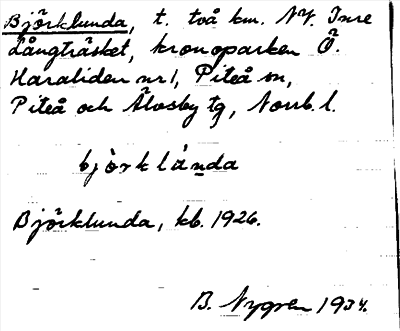 Björklunda, t. två km. NV. Inre
Långträsket, kronoparken Ö.
Haraliden nr 1, Piteå sn,
Piteå och Älvsby tg, Norrb. l.
björklånda
Björklunda, kb. 1926.
B. Nygren 1934.